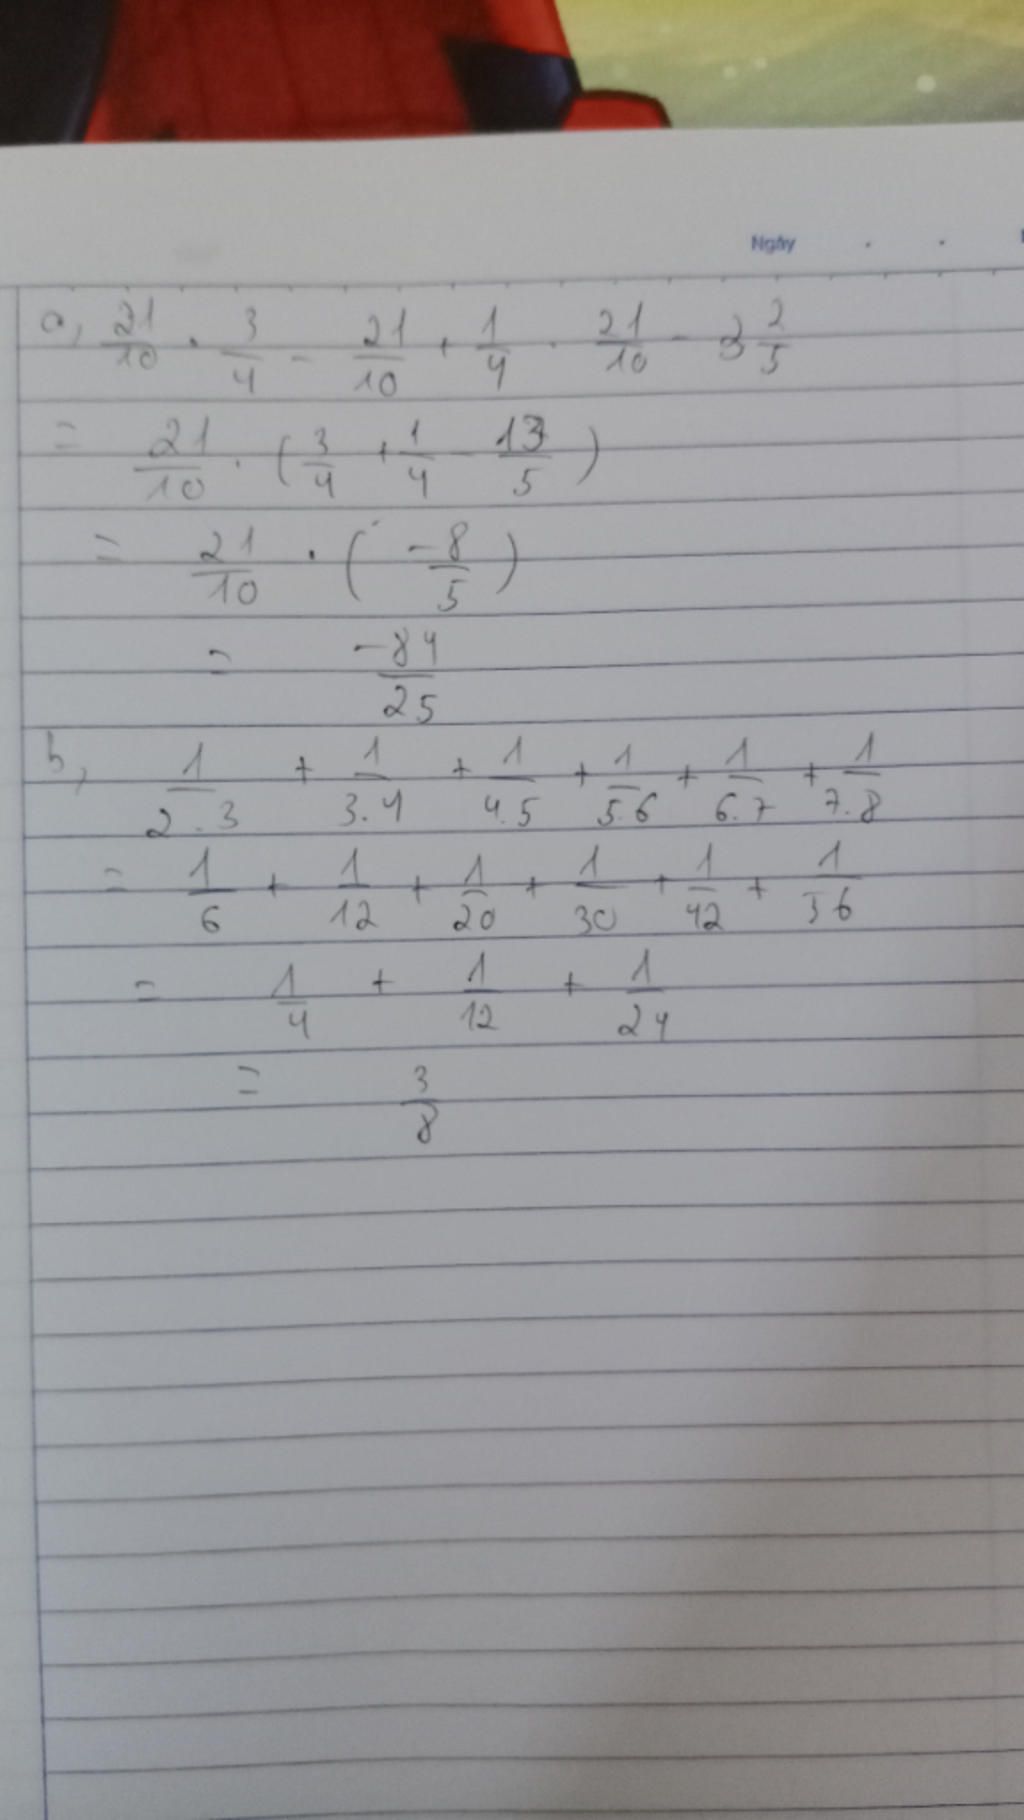 Ngày . .
a, 21/10 . 3/4 - 21/10 + 1/4 . 21/10 - 2/5
= 21/10 . (3/4 + 1/4 - 13/5)
= 21/10 . (-8/5)
= -84/25
b, 1/2.3 + 1/3.4 + 1/4.5 + 1/5.6 + 1/6.7 + 1/7.8
= 1/6 + 1/12 + 1/20 + 1/30 + 1/42 + 1/56
= 1/4 + 1/12 + 1/24
= 3/8